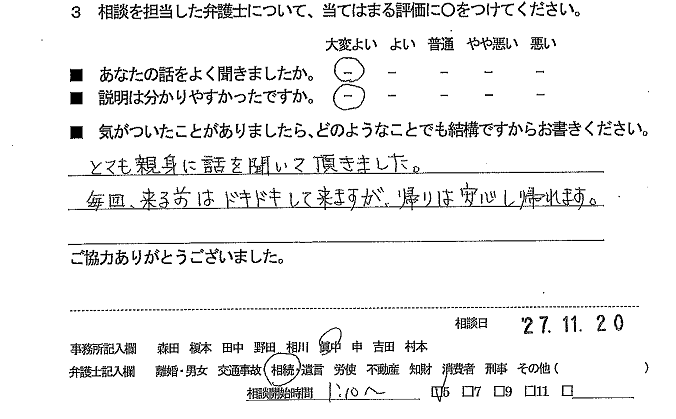 3 相談を担当した弁護士について、当てはまる評価に〇をつけてください。
大変よい よい 普通 やや悪い 悪い
■ あなたの話をよく聞きましたか。 － － － － －
■ 説明は分かりやすかったですか。 － － － － －
■ 気がついたことがありましたら、どのようなことでも結構ですからお書きください。
とても親身に話を聞いて頂きました。
毎回、来る前はドキドキして来ますが、帰りは安心し帰れます。
ご協力ありがとうございました。
相談日 '27.11.20
事務所記入欄 森田 榎本 田中 野田 相川 眞中 申 吉田 村本
弁護士記入欄 離婚・男女 交通事故 相続・遺言 労使 不動産 知財 消費者 刑事 その他（ ）
相談開始時間 1:10～ □5 □7 □9 □11 □